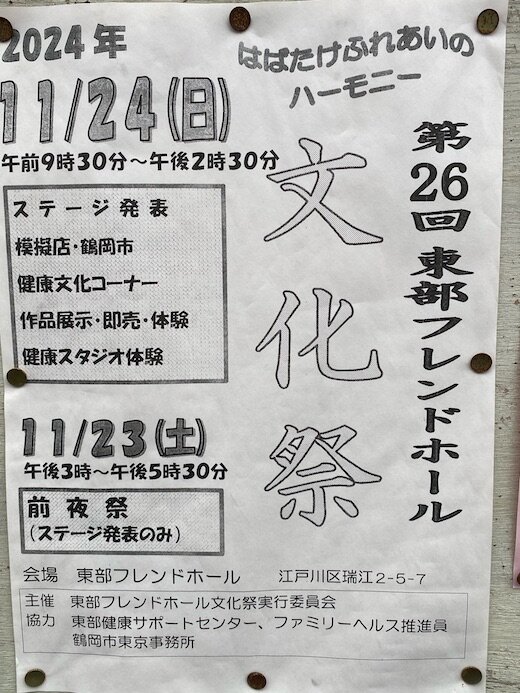 はばたけふれあいの
ハーモニー
第26回 東部フレンドホール
文化祭
2024年
11/24(日)
午前9時30分～午後2時30分
ステージ発表
模擬店・鶴岡市
健康文化コーナー
作品展示・即売・体験
健康スタジオ体験
11/23(土)
午後3時～午後5時30分
前夜祭
(ステージ発表のみ)
会場 東部フレンドホール 江戸川区瑞江2-5-7
主催 東部フレンドホール文化祭実行委員会
協力 東部健康サポートセンター、ファミリーヘルス推進員
鶴岡市東京事務所